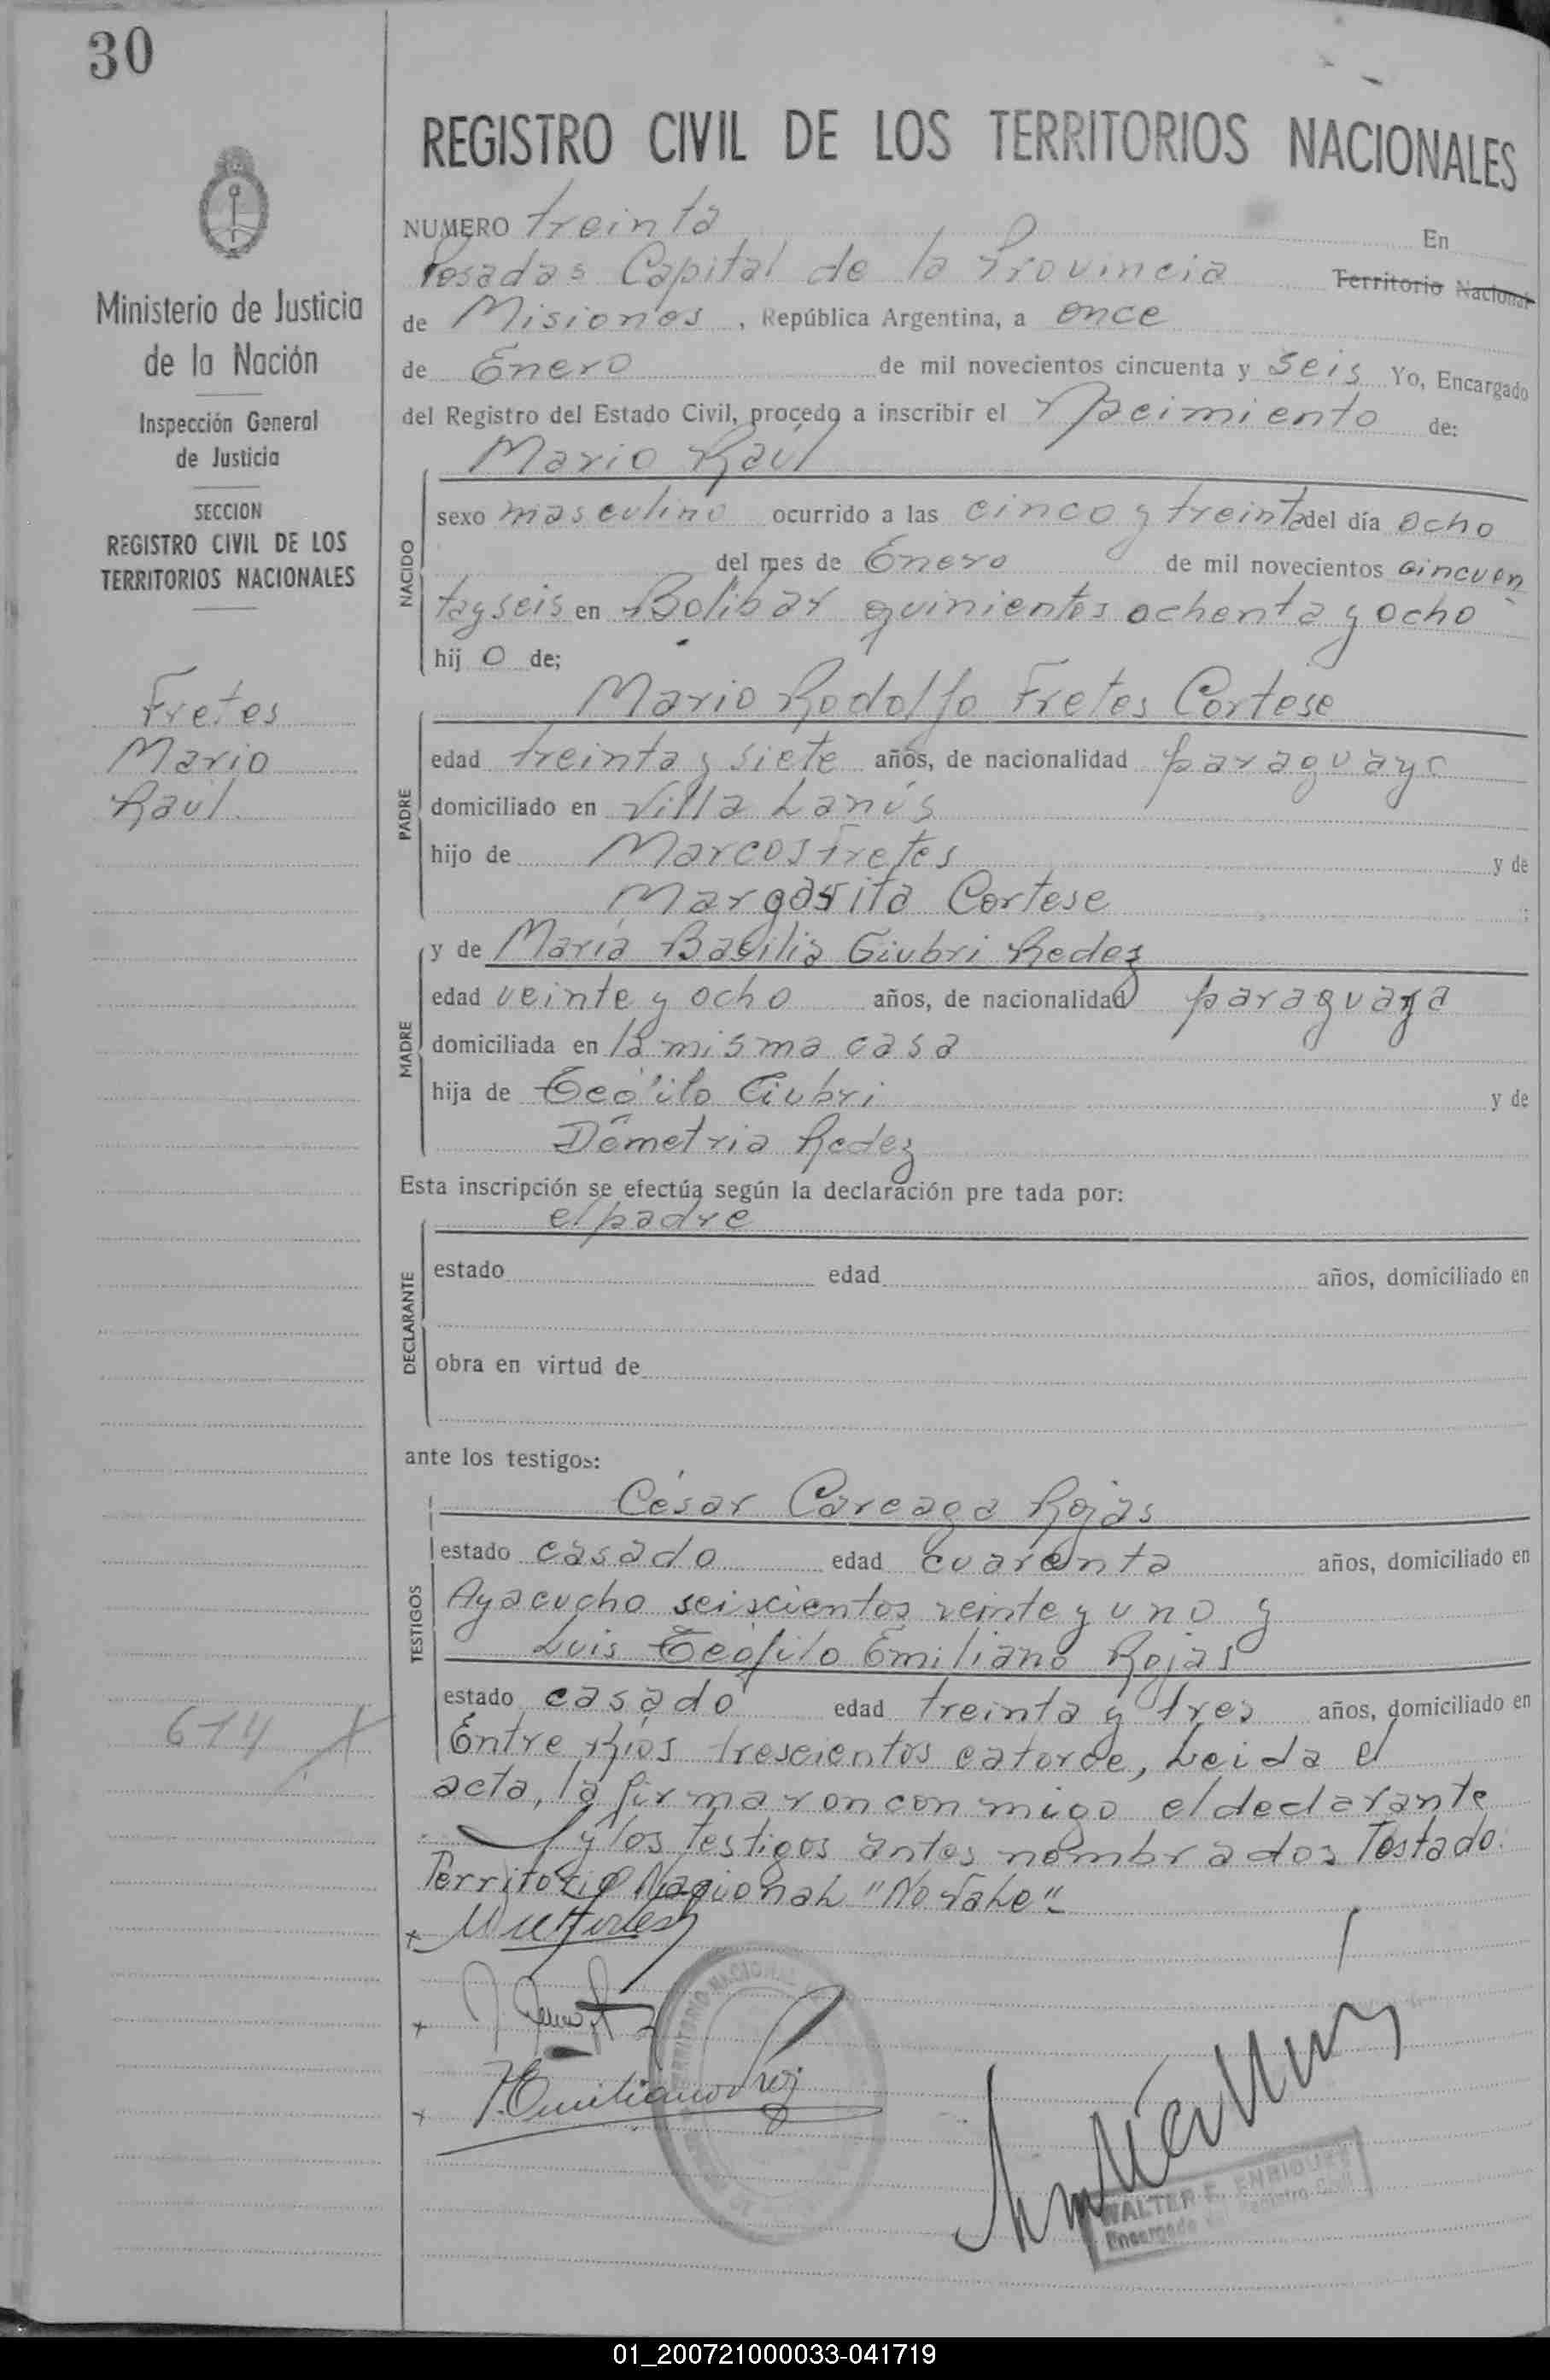 30
REGISTRO CIVIL DE LOS TERRITORIOS NACIONALES
Ministerio de Justicia
de la Nación
Inspección General
de Justicia
SECCION
REGISTRO CIVIL DE LOS
TERRITORIOS NACIONALES
Fretes
Mario
Raúl.
614
NUMERO treinta En
Posadas Capital de la Provincia Territorio Nacional
de Misiones, República Argentina, a once
de Enero de mil novecientos cincuenta y seis Yo, Encargado
del Registro del Estado Civil, procedo a inscribir el nacimiento de:
Mario Raúl
NACIDO
sexo masculino ocurrido a las cinco y treinta del día ocho
del mes de Enero de mil novecientos cincuen
tayseis en Bolibar quinientos ochenta y ocho
hij o de;
Mario Rodolfo Fretes Cortese
PADRE
edad treinta y siete años, de nacionalidad paraguayo
domiciliado en Villa Lanús
hijo de Marcos Fretes y de
Margarita Cortese ;
MADRE
y de María Basilia Giubri Redez
edad veinte y ocho años, de nacionalidad paraguaya
domiciliada en la misma casa
hija de Teófilo Giubri y de
Demetria Redez
Esta inscripción se efectúa según la declaración pre tada por:
el padre
DECLARANTE
estado edad años, domiciliado en
obra en virtud de
ante los testigos:
César Careaga Rojas
TESTIGOS
estado casado edad cuarenta años, domiciliado en
Ayacucho seiscientos veinte y uno y
Luis Teófilo Emiliano Rojas
estado casado edad treinta y tres años, domiciliado en
Entre Ríos trescientos catorce, Leida el
acta, la firmaron conmigo el declarante
y los testigos antes nombrados Testado:
Territorio Nacional "No Vale"-
WALTER E. ENRIQUEZ
Encargado del Registro Civil
01_200721000033-041719